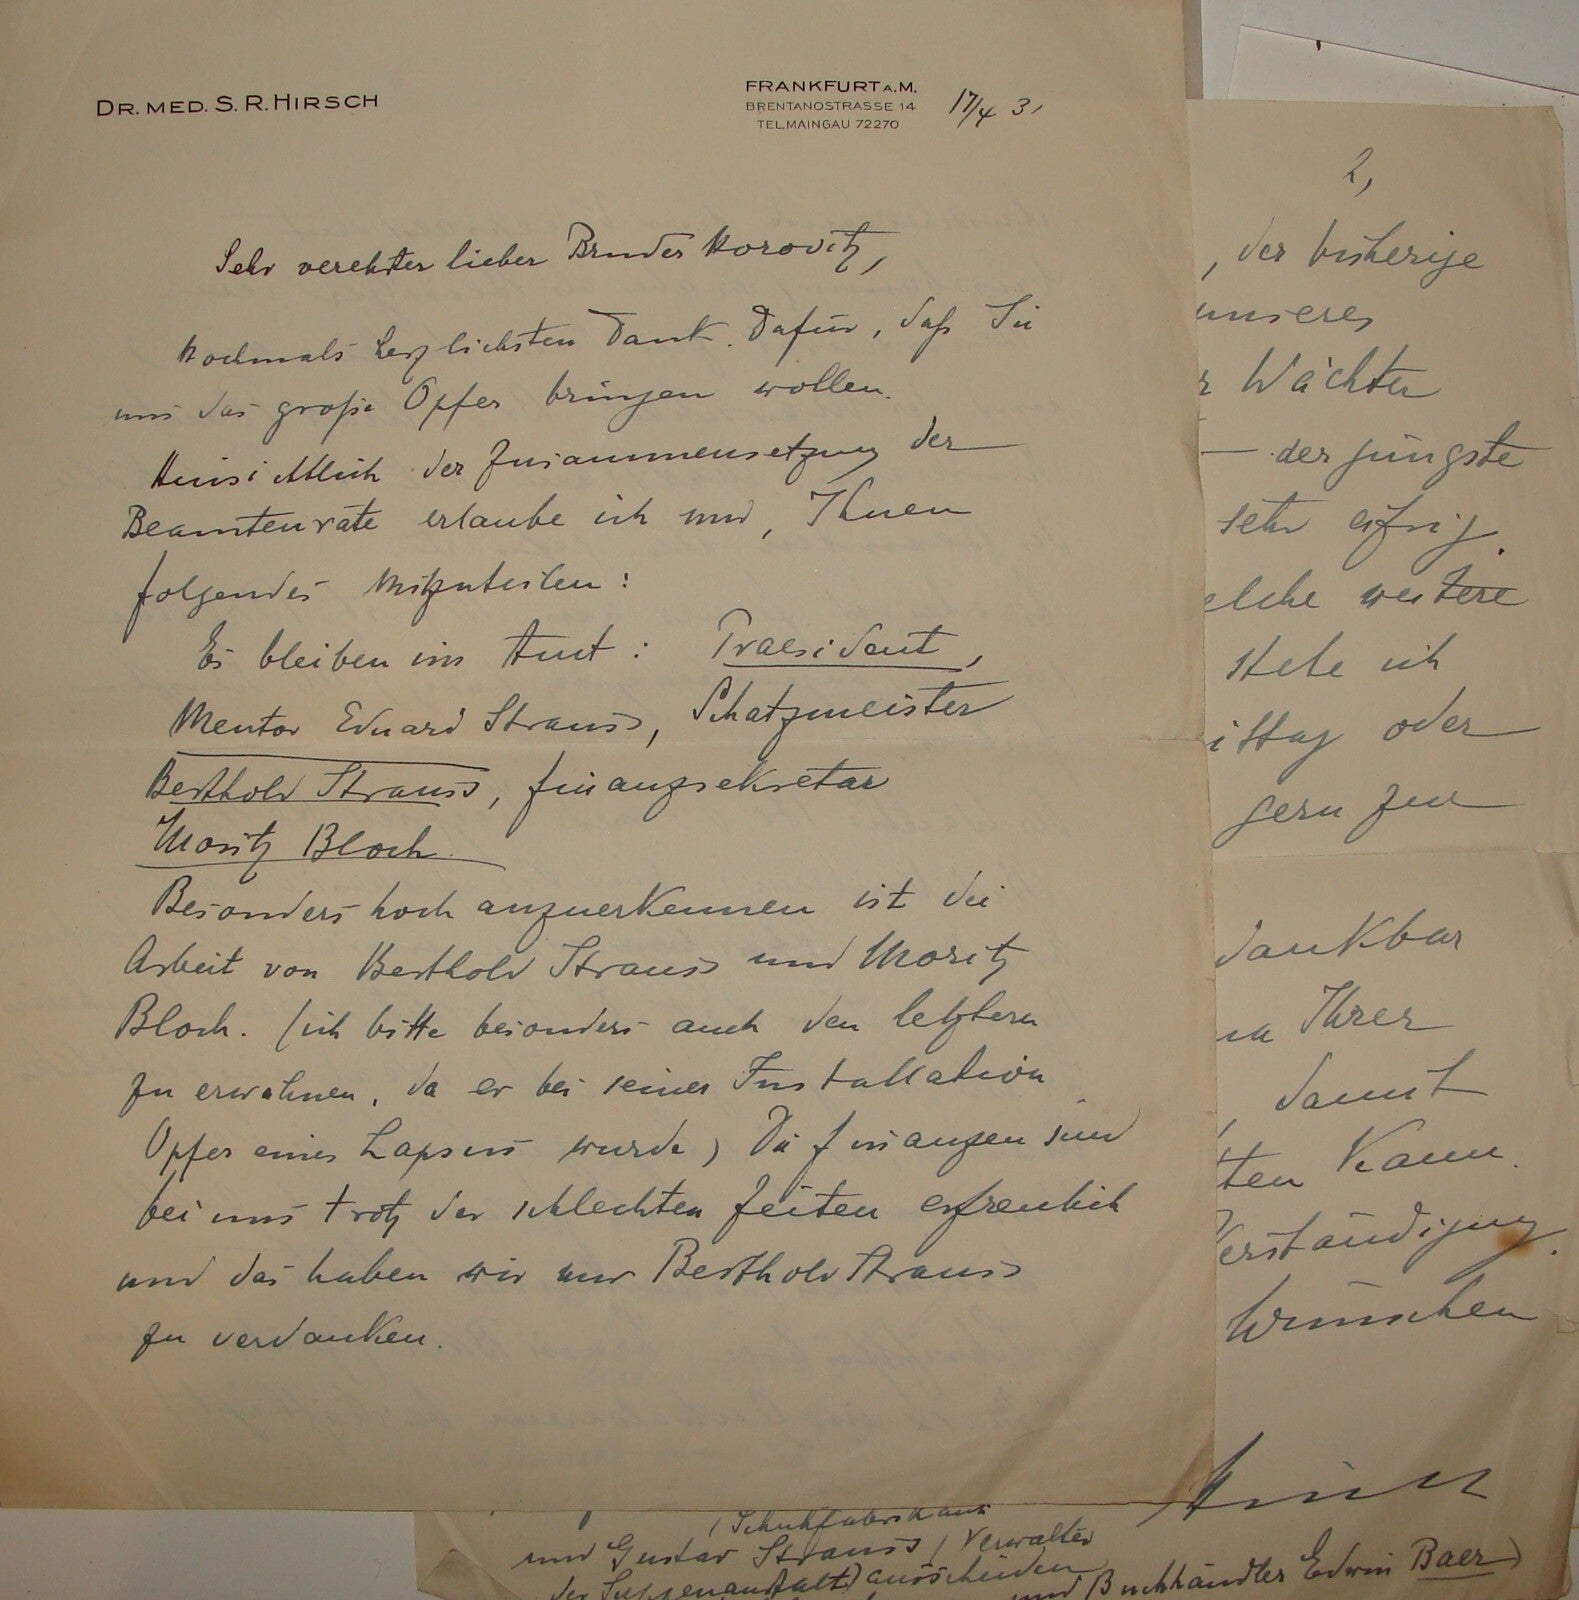 DR. MED. S. R. HIRSCH
FRANKFURT A. M.
BRENTANOSTRASSE 14
TEL. MAINGAU 72270
17/4 31
Sehr verehrter lieber Bruder Horovitz,
Nochmals herzlichsten Dank dafür, daß Sie
uns das große Opfer bringen wollen.
Hinsichtlich der Zusammensetzung der
Beamtenräte erlaube ich mir, Ihnen
folgendes mitzuteilen:
Es bleiben im Amt: Praesident,
Mentor Eduard Strauss, Schatzmeister
Berthold Strauss, Finanzsekretär
Moritz Bloch.
Besonders hoch anzuerkennen ist die
Arbeit von Berthold Strauss und Moritz
Bloch. (ich bitte besonders auch den letztern
zu erwähnen, da er bei seiner Installation
Opfer eines Lapsus wurde) Die Finanzen sind
bei uns trotz der schlechten Zeiten erfreulich
und das haben wir nur Berthold Strauss
zu verdanken.
2,
, der bisherige
unseres
Wächter
– der jüngste
sehr eifrig.
elche weitere
stehe ich
ittag oder
gern zur
dankbar
Ihrer
, damit
ten kann.
Verständigung.
Wünschen
Hirsch
(Schuhfabrikant
und Gustav Strauss (Verwalter
der Suppenanstalt) ausscheiden
und Buchhändler Edwin Baer)